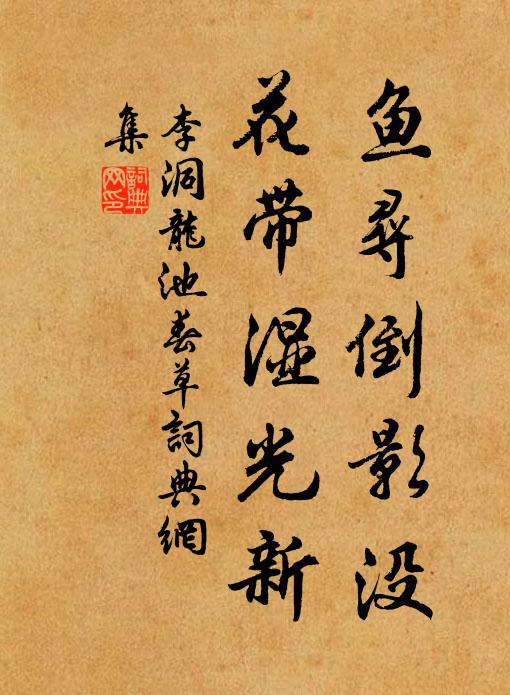 鱼寻倒影没
花带湿光新
李洞龍池春草詞典網
集
詞典網印